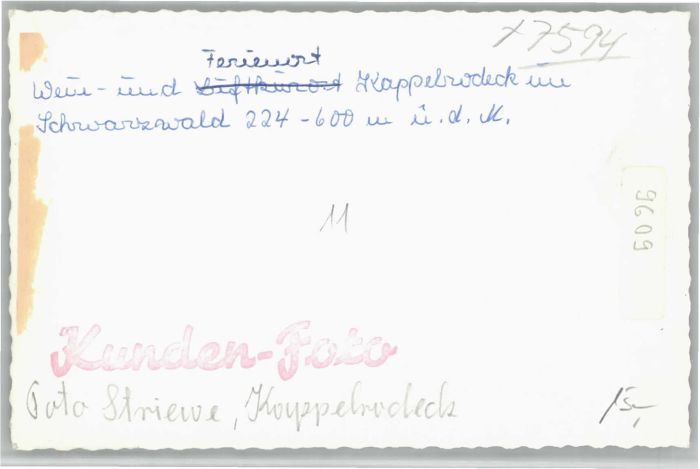 x7594
Ferienort
Wein- und Luftkurort Kappelrodeck im
Schwarzwald 224-600 m ü. d. M.
9609
11
Kunden-Foto
Foto Striewe, Kappelrodeck
15,-